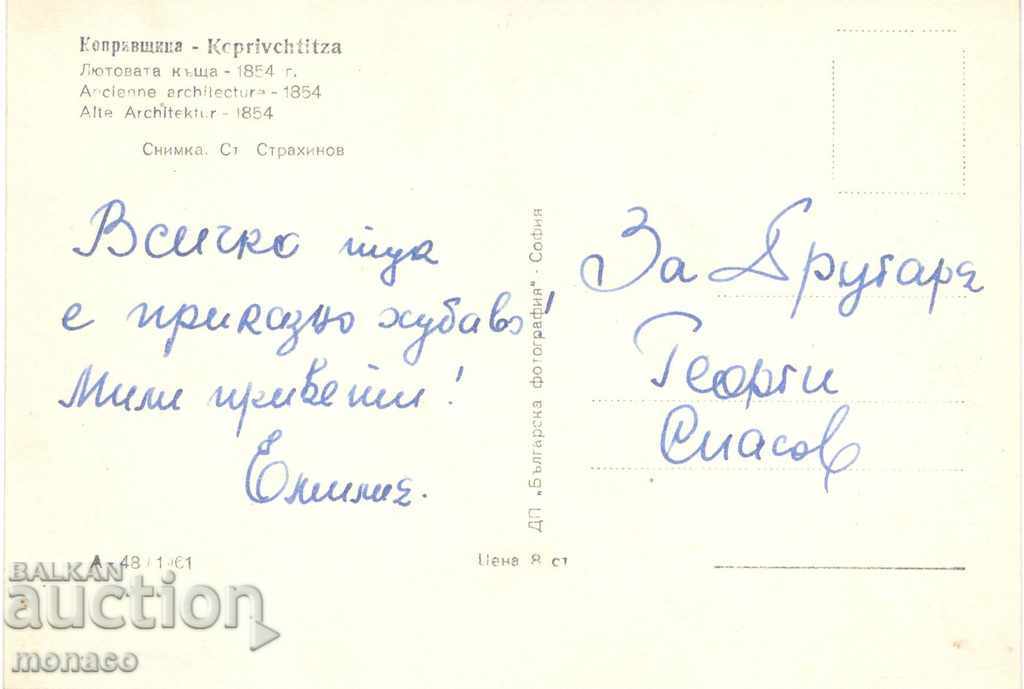 Копривщица - Koprivchtitza
Лютовата къща - 1854 г.
Ancienne architectura - 1854
Alte Architektur - 1854
Снимка. Ст Страхинов
Всичко тук
е приказно хубаво!
Мили привети!
Емилия.
За Другаря
Георги
Спасов
ДП „Българска фотография" - София
А - 48 / 1961
Цена 8 ст
BALKAN
auction
monaco